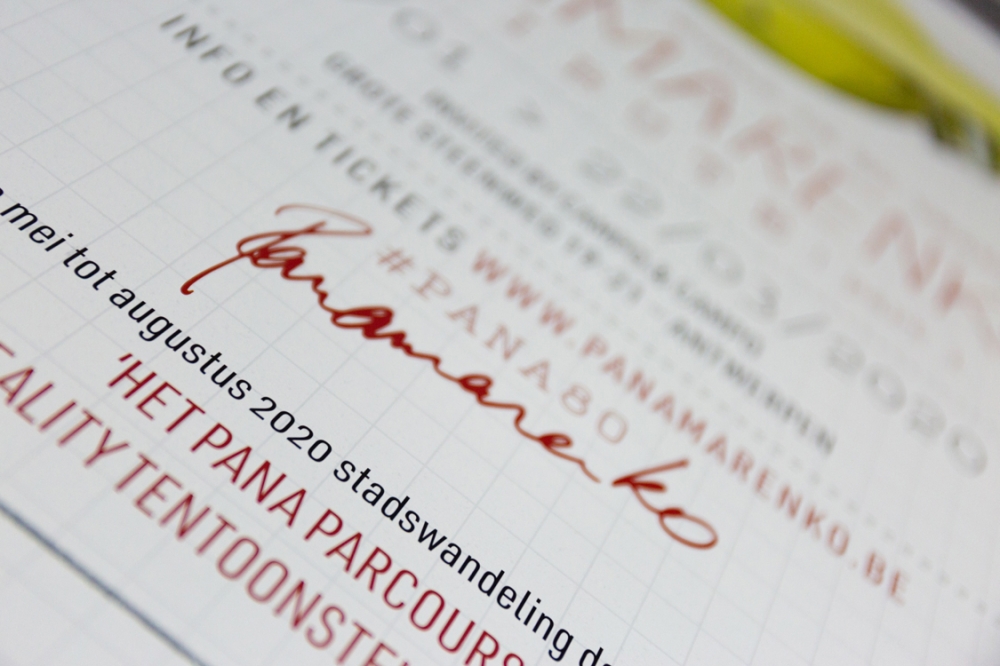 22/03/2020
GROTE STEENWEG 19-21 - ANTWERPEN
INFO EN TICKETS WWW.PANAMARENKO.BE
#PANA80
Panamarenko
mei tot augustus 2020 stadswandeling
'HET PANA PARCOURS
ALITY TENTOONSTE